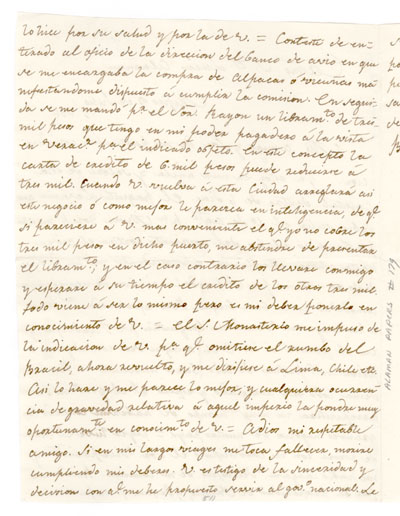 lo hice por su salud y por la de V. = Contesté de en-
terado al oficio de la direccion del banco de avio en que
se me encargaba la compra de Alpacas ó vicuñas ma
nifestandome dispuesto á cumplir la comision. En segui
da se me mandó pr. el Sor. Rayon un libramto. de tres
mil pesos que tengo en mi poder pagadero á la vista
en Veracz. pa. el indicado objeto. En este concepto la
carta de credito de 6 mil pesos puede reducirse á
tres mil. Cuando V. vuelva á esta Ciudad arreglará asi
este negocio ó como mejor le parezca en inteligencia, de qe.
si pareciere á V. mas conveniente el qe. yo no cobre los
tres mil pesos en dicho puerto, me abstendre de presentar
el libramto.; y en el caso contrario los llevaré conmigo
y esperaré á su tiempo el credito de los otros tres mil.
Todo viene á ser lo mismo pero es mi deber ponerlo en
conocimiento de V. = el S. Monasterio me impuso de
la indicacion de V. pa. qe. omitiese el rumbo del
Brasil, ahora revuelto, y me dirijiese á Lima, Chile etc.
Asi lo haré y me parece lo mejor, y cualquiera ocurren
cia de gravedad relativa á aquel imperio la pondré muy
oportunamte. en conocimto. de V. = Adios mi respetable
amigo. Si en mis largos viages me toca fallecer, moriré
cumpliendo mis deberes. V. es testigo de la sinceridad y
decision con qe. me he propuesto servir al gov.o nacional. Le
ALAMAN PAPERS # 179